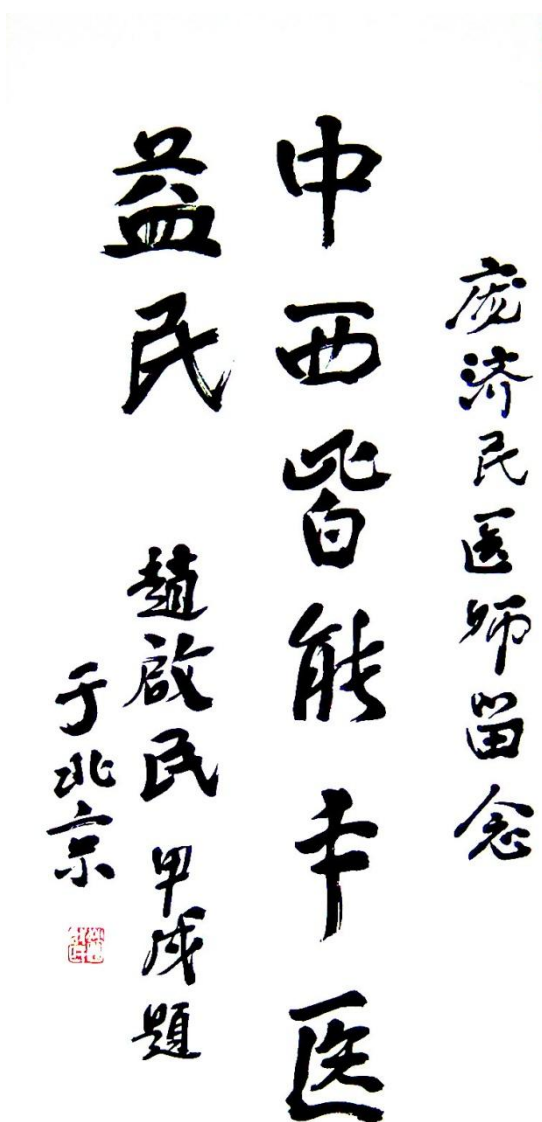 庞济民医师留念
中西皆能本医
益民
趙啟民 甲戌題
于北京